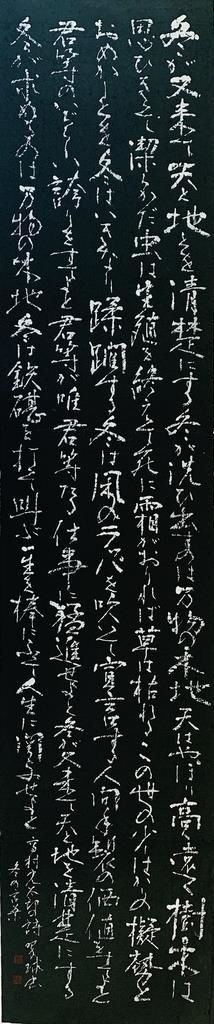 冬が又来て天と地とを清楚にする冬が洗ひ出すのは万物の木地天はやはり高く遠く樹木は
思ひきって潔らかだ虫は生殖を終へて死に霜がおりれば草は枯れるこの世の少しばかりの擬勢と
おめかしとを冬はいきなり蹂躙する冬は凩のラッパを吹いて宣言する人間手製の価値をすてよと
君等のいぢらしい誇りをすてよと君等が唯君等たる仕事に猛進せよと冬が又来て天と地とを清楚にする
冬が求めるのは万物の木地冬は鉄碪を打って叫ぶ一生を棒にふって人生に関与せよと 高村光太郎詩